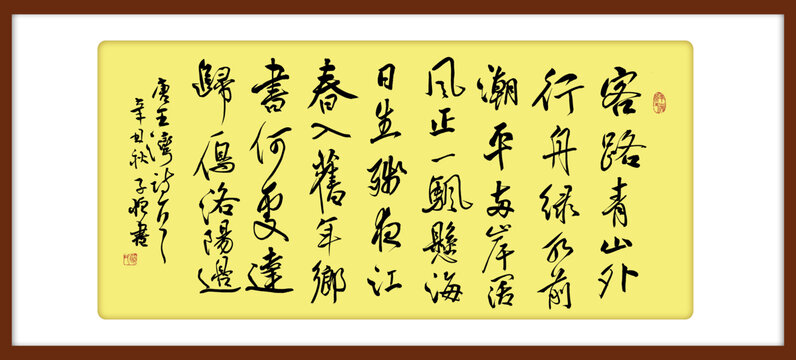 客路青山外
行舟緑水前
潮平兩岸闊
風正一颿懸海
日生殘夜江
春入舊年鄉
書何處達
歸雁洛陽邊
唐王灣詩
辛丑秋子書